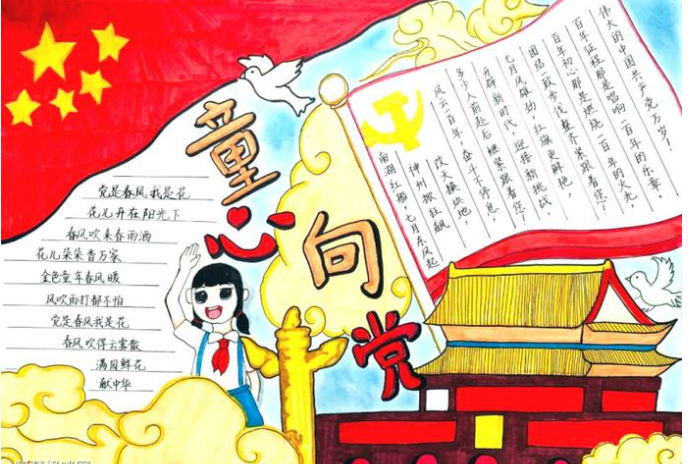 童心向党
党是春风我是花
花儿开在阳光下
春风吹来春雨洒
花儿朵朵香万家
金色童年春风暖
风吹雨打都不怕
党是春风我是花
春风吹得云雾散
满园鲜花
献中华
南湖红船,七月东风起
神州掀狂飙
改天换地,
风云百年,奋斗不停息,
多少人前赴后继紧跟着您!
开辟新时代,迎接新挑战
七月风雄劲,红旗更鲜艳,
团结一致步伐整齐紧跟着您!
百年初心那是燃烧一百年的火光,
百年征程那是唱响一百年的乐章,
伟大的中国共产党万岁!